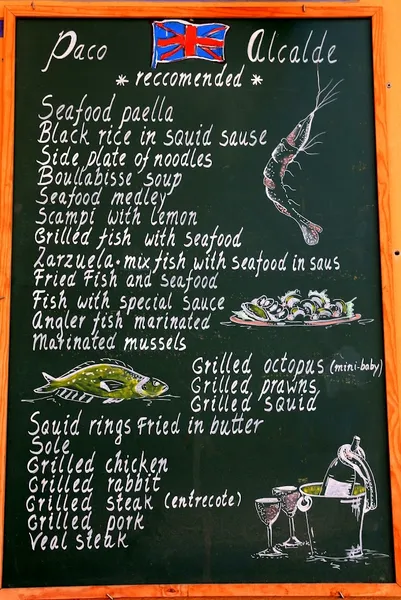 Paco Alcalde
* reccomended *
Seafood paella
Black rice in squid sause
Side plate of noodles
Boullabisse soup
Seafood medley
Scampi with lemon
Grilled fish with seafood
Zarzuela·mix fish with seafood in saus
Fried Fish and seafood
Fish with special sauce
Angler fish marinated
Marinated mussels
Grilled octopus (mini-baby)
Grilled prawns
Grilled squid
Squid rings Fried in butter
Sole
Grilled chicken
Grilled rabbit
Grilled steak (entrecote)
Grilled pork
Veal steak